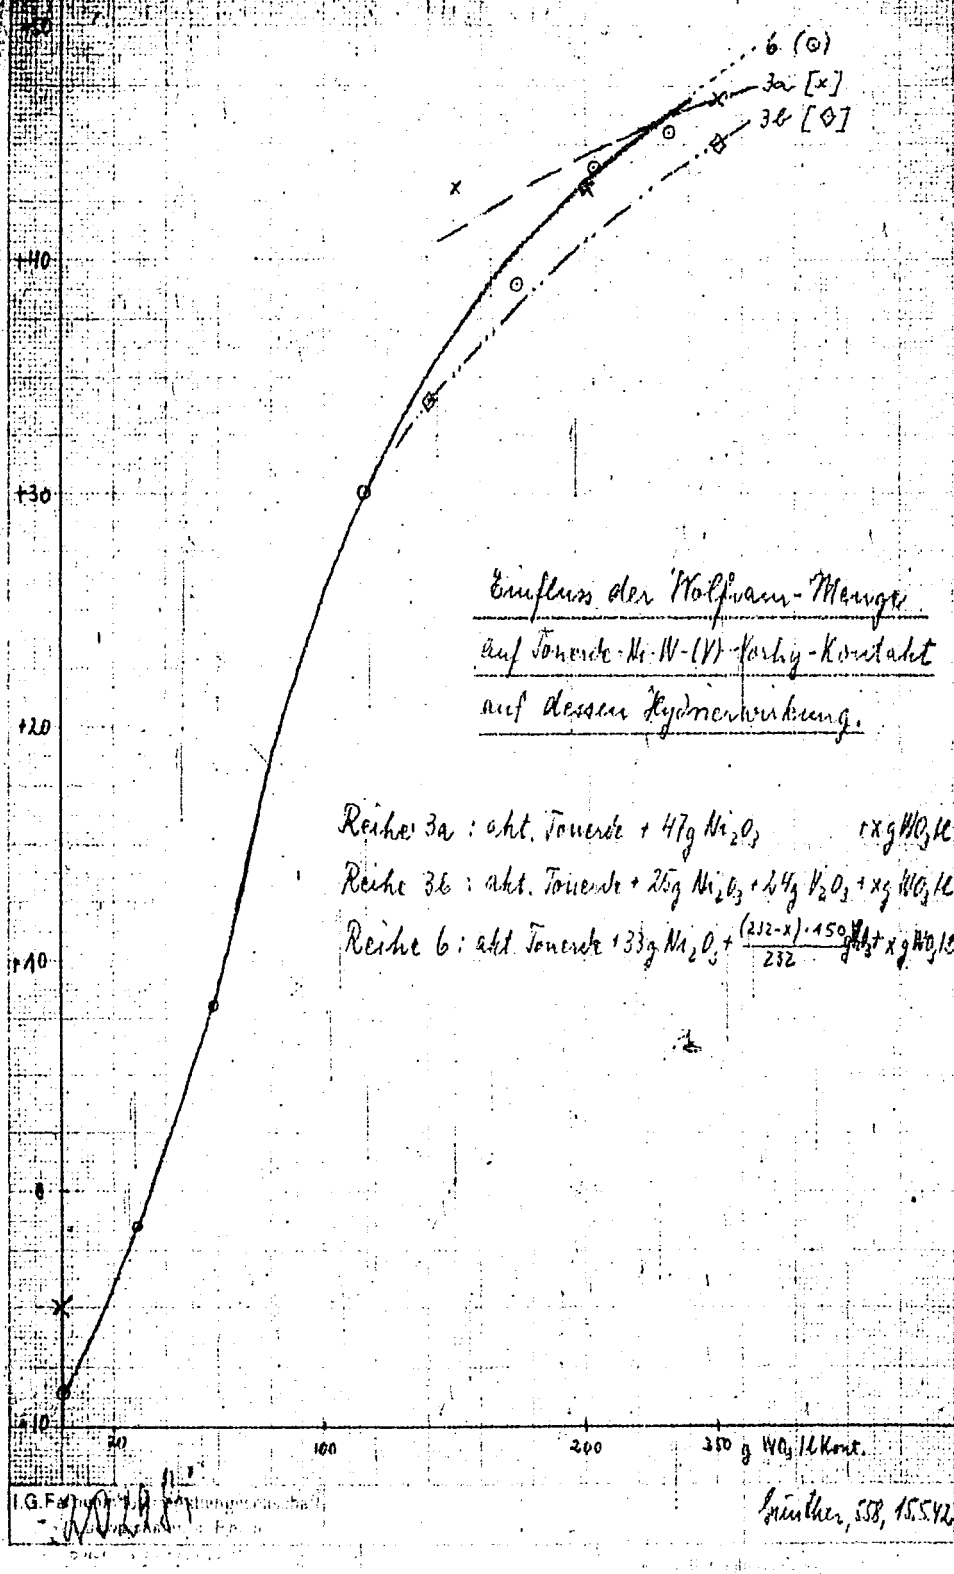 +50
6 (⊙)
3a [x]
3b [◇]
+40
+30
Einfluss der Wolfram-Menge
auf Tonerde-Ni-W-(V)-Vorhy-Kontakt
auf dessen Hydrierwirkung.
+20
Reihe 3a : akt. Tonerde + 47g Ni₂O₃ + xg WO₃/l
Reihe 3b : akt. Tonerde + 25g Ni₂O₃ + 24g V₂O₃ + xg WO₃/l
Reihe 6 : akt Tonerde + 33g Ni₂O₃ + (232-x)·150/232 g + xg WO₃/l
+10
0
-10
20 100 200 250 g WO₃/l Kont.
I.G.
Günther, 558, 15.5.42